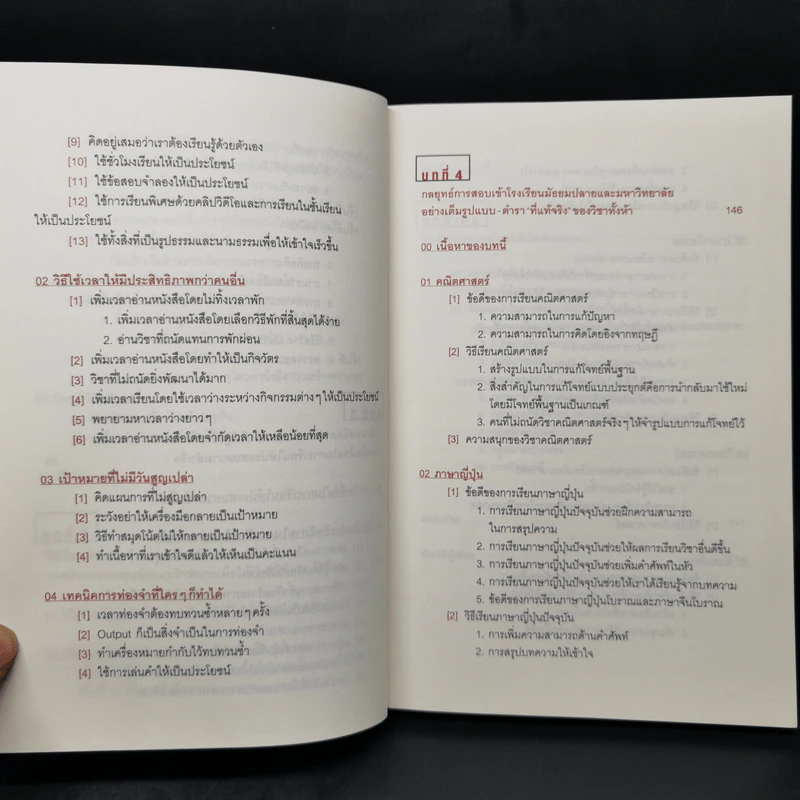 [9] คิดอยู่เสมอว่าเราต้องเรียนรู้ด้วยตัวเอง
[10] ใช้ชั่วโมงเรียนให้เป็นประโยชน์
[11] ใช้ข้อสอบจำลองให้เป็นประโยชน์
[12] ใช้การเรียนพิเศษด้วยคลิปวิดีโอและการเรียนในชั้นเรียน
ให้เป็นประโยชน์
[13] ใช้ทั้งสิ่งที่เป็นรูปธรรมและนามธรรมเพื่อให้เข้าใจเร็วขึ้น
02 วิธีใช้เวลาให้มีประสิทธิภาพกว่าคนอื่น
[1] เพิ่มเวลาอ่านหนังสือโดยไม่ทิ้งเวลาพัก
1. เพิ่มเวลาอ่านหนังสือโดยเลือกวิธีพักที่สิ้นสุดได้ง่าย
2. อ่านวิชาที่ถนัดแทนการพักผ่อน
[2] เพิ่มเวลาอ่านหนังสือโดยทำให้เป็นกิจวัตร
[3] วิชาที่ไม่ถนัดยิ่งพัฒนาได้มาก
[4] เพิ่มเวลาเรียนโดยใช้เวลาว่างระหว่างกิจกรรมต่างๆ ให้เป็นประโยชน์
[5] พยายามหาเวลาว่างยาวๆ
[6] เพิ่มเวลาอ่านหนังสือโดยจำกัดเวลาให้เหลือน้อยที่สุด
03 เป้าหมายที่ไม่มีวันสูญเปล่า
[1] คิดแผนการที่ไม่สูญเปล่า
[2] ระวังอย่าให้เครื่องมือกลายเป็นเป้าหมาย
[3] วิธีทำสมุดโน้ตไม่ให้กลายเป็นเป้าหมาย
[4] ทำเนื้อหาที่เราเข้าใจดีแล้วให้เห็นเป็นคะแนน
04 เทคนิคการท่องจำที่ใครๆ ก็ทำได้
[1] เวลาท่องจำต้องทบทวนซ้ำหลายๆ ครั้ง
[2] Output ก็เป็นสิ่งจำเป็นในการท่องจำ
[3] ทำเครื่องหมายกำกับไว้ทบทวนซ้ำ
[4] ใช้การเล่นคำให้เป็นประโยชน์
บทที่ 4
กลยุทธ์การสอบเข้าโรงเรียนมัธยมปลายและมหาวิทยาลัย
อย่างเต็มรูปแบบ - ตำรา "ที่แท้จริง" ของวิชาทั้งห้า 146
00 เนื้อหาของบทนี้
01 คณิตศาสตร์
[1] ข้อดีของการเรียนคณิตศาสตร์
1. ความสามารถในการแก้ปัญหา
2. ความสามารถในการคิดโดยอิงจากทฤษฎี
[2] วิธีเรียนคณิตศาสตร์
1. สร้างรูปแบบในการแก้โจทย์พื้นฐาน
2. สิ่งสำคัญในการแก้โจทย์แบบประยุกต์คือการนำกลับมาใช้ใหม่
โดยมีโจทย์พื้นฐานเป็นเกณฑ์
3. คนที่ไม่ถนัดวิชาคณิตศาสตร์จริงๆ ให้จำรูปแบบการแก้โจทย์ไว้
[3] ความสนุกของวิชาคณิตศาสตร์
02 ภาษาญี่ปุ่น
[1] ข้อดีของการเรียนภาษาญี่ปุ่น
1. การเรียนภาษาญี่ปุ่นปัจจุบันช่วยฝึกความสามารถ
ในการสรุปความ
2. การเรียนภาษาญี่ปุ่นปัจจุบันช่วยให้ผลการเรียนวิชาอื่นดีขึ้น
3. การเรียนภาษาญี่ปุ่นปัจจุบันช่วยเพิ่มคำศัพท์ในหัว
4. การเรียนภาษาญี่ปุ่นปัจจุบันช่วยให้เราได้เรียนรู้จากบทความ
5. ข้อดีของการเรียนภาษาญี่ปุ่นโบราณและภาษาจีนโบราณ
[2] วิธีเรียนภาษาญี่ปุ่นปัจจุบัน
1. การเพิ่มความสามารถด้านคำศัพท์
2. การสรุปบทความให้เข้าใจ